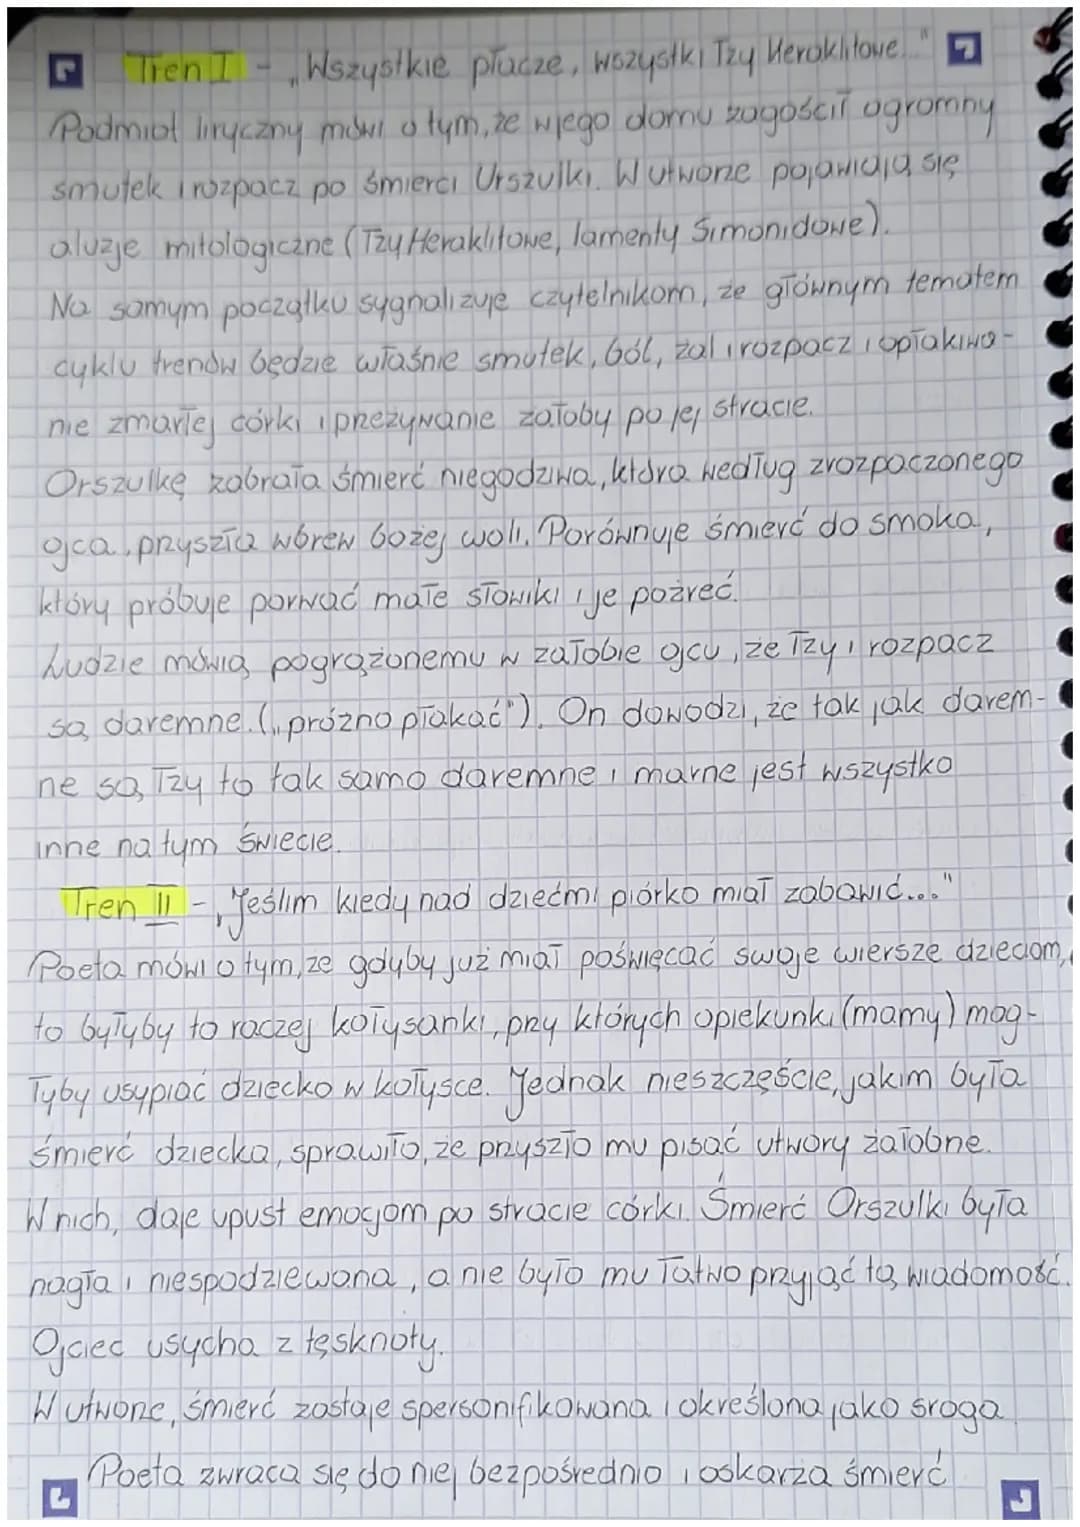 Tren I - „Wszystkie płacze, wszystki łzy Heraklitowe..."
Podmiot liryczny mówi o tym, że w jego domu zagościł ogromny
smutek i rozpacz po śmierci Urszulki. W utworze pojawiają się
aluzje mitologiczne (łzy Heraklitowe, lamenty Simonidowe).
Na samym początku sygnalizuje czytelnikom, że głównym tematem
cyklu trenów będzie właśnie smutek, ból, żal i rozpacz i opłakiwa-
nie zmarłej córki i przezywanie żałoby po jej stracie.
Orszulkę zabrała śmierć niegodziwa, która według zrozpaczonego
ojca, przyszła wbrew bożej woli. Porównuje śmierć do smoka,
który próbuje porwać małe słowiki i je pożreć.
Ludzie mówią pogrążonemu w żałobie ojcu, że łzy i rozpacz
są daremne. („próżno płakać"). On dowodzi, że tak jak darem-
ne są łzy to tak samo daremne i marne jest wszystko
inne na tym świecie.
Tren II - „Jeślim kiedy nad dziećmi piórko miał zabawić..."
Poeta mówi o tym, że gdyby już miał poświęcać swoje wiersze dzieciom,
to byłyby to raczej kołysanki, przy których opiekunki (mamy) mog-
łyby usypiać dziecko w kołysce. Jednak nieszczęście, jakim była
śmierć dziecka, sprawiło, że przyszło mu pisać utwory żałobne.
W nich, daje upust emocjom po stracie córki. Śmierć Orszulki była
nagła i niespodziewana, a nie było mu łatwo przyjąć tą wiadomość.
Ojciec usycha z tęsknoty.
W utworze, śmierć zostaje spersonifikowana i określona jako sroga
Poeta zwraca się do niej bezpośrednio i oskarża śmierć